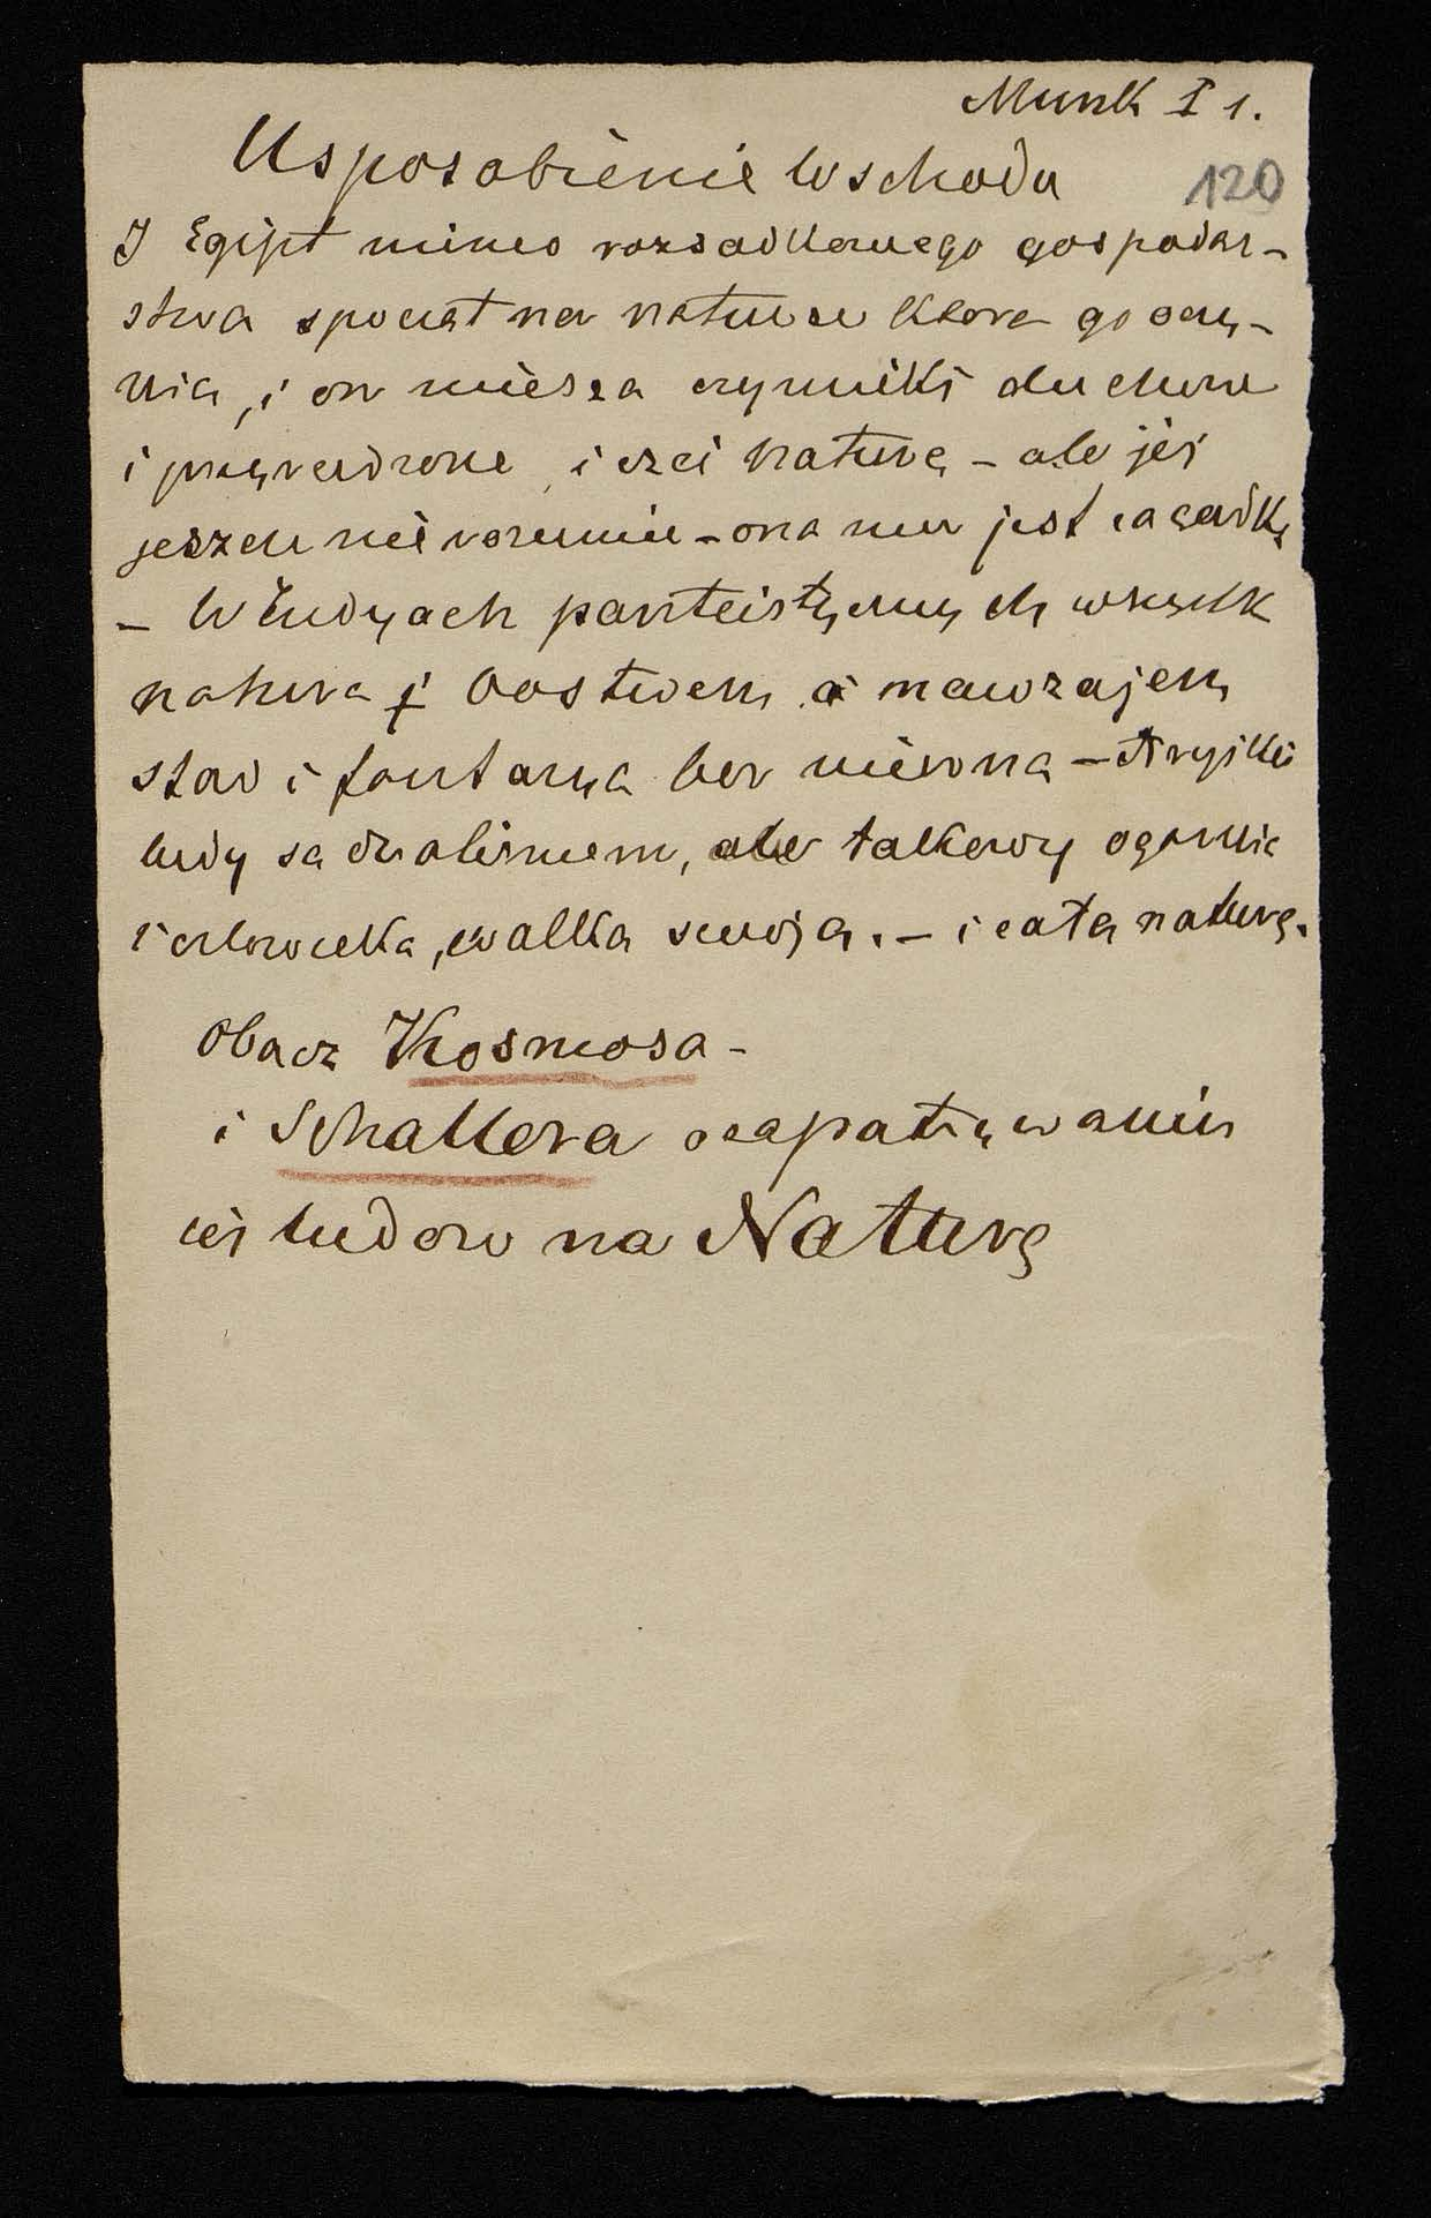 Munk I 1.
Usposobienie Wschodu
120
I Egipt mimo rozsadkowego gospodar-
stwa spoczął na naturze która go
nia, i on miesza czynniki duchowe
i przyrodzone, i czci naturę – ale jéj
jeszcze nie rozumie – ona mu jest zagadką
– W Indyach panteistycznych wszystk
natura j bostwem a nawzajem
staw i fontanna bez
ludy sa dualizmem, ale takowy ogarnie
i człowieka, walka swoją. – i całą naturę.
Obacz Kosmosa –
i Schallera zapatrywania
się ludow na Naturę